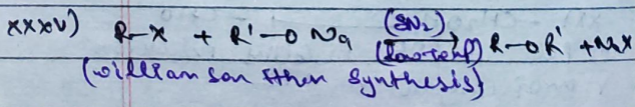 xxxv) R-X + R'-O Na (SN2) (Low temp) → R-O R' + NaX
(willian son Ether synthesis)